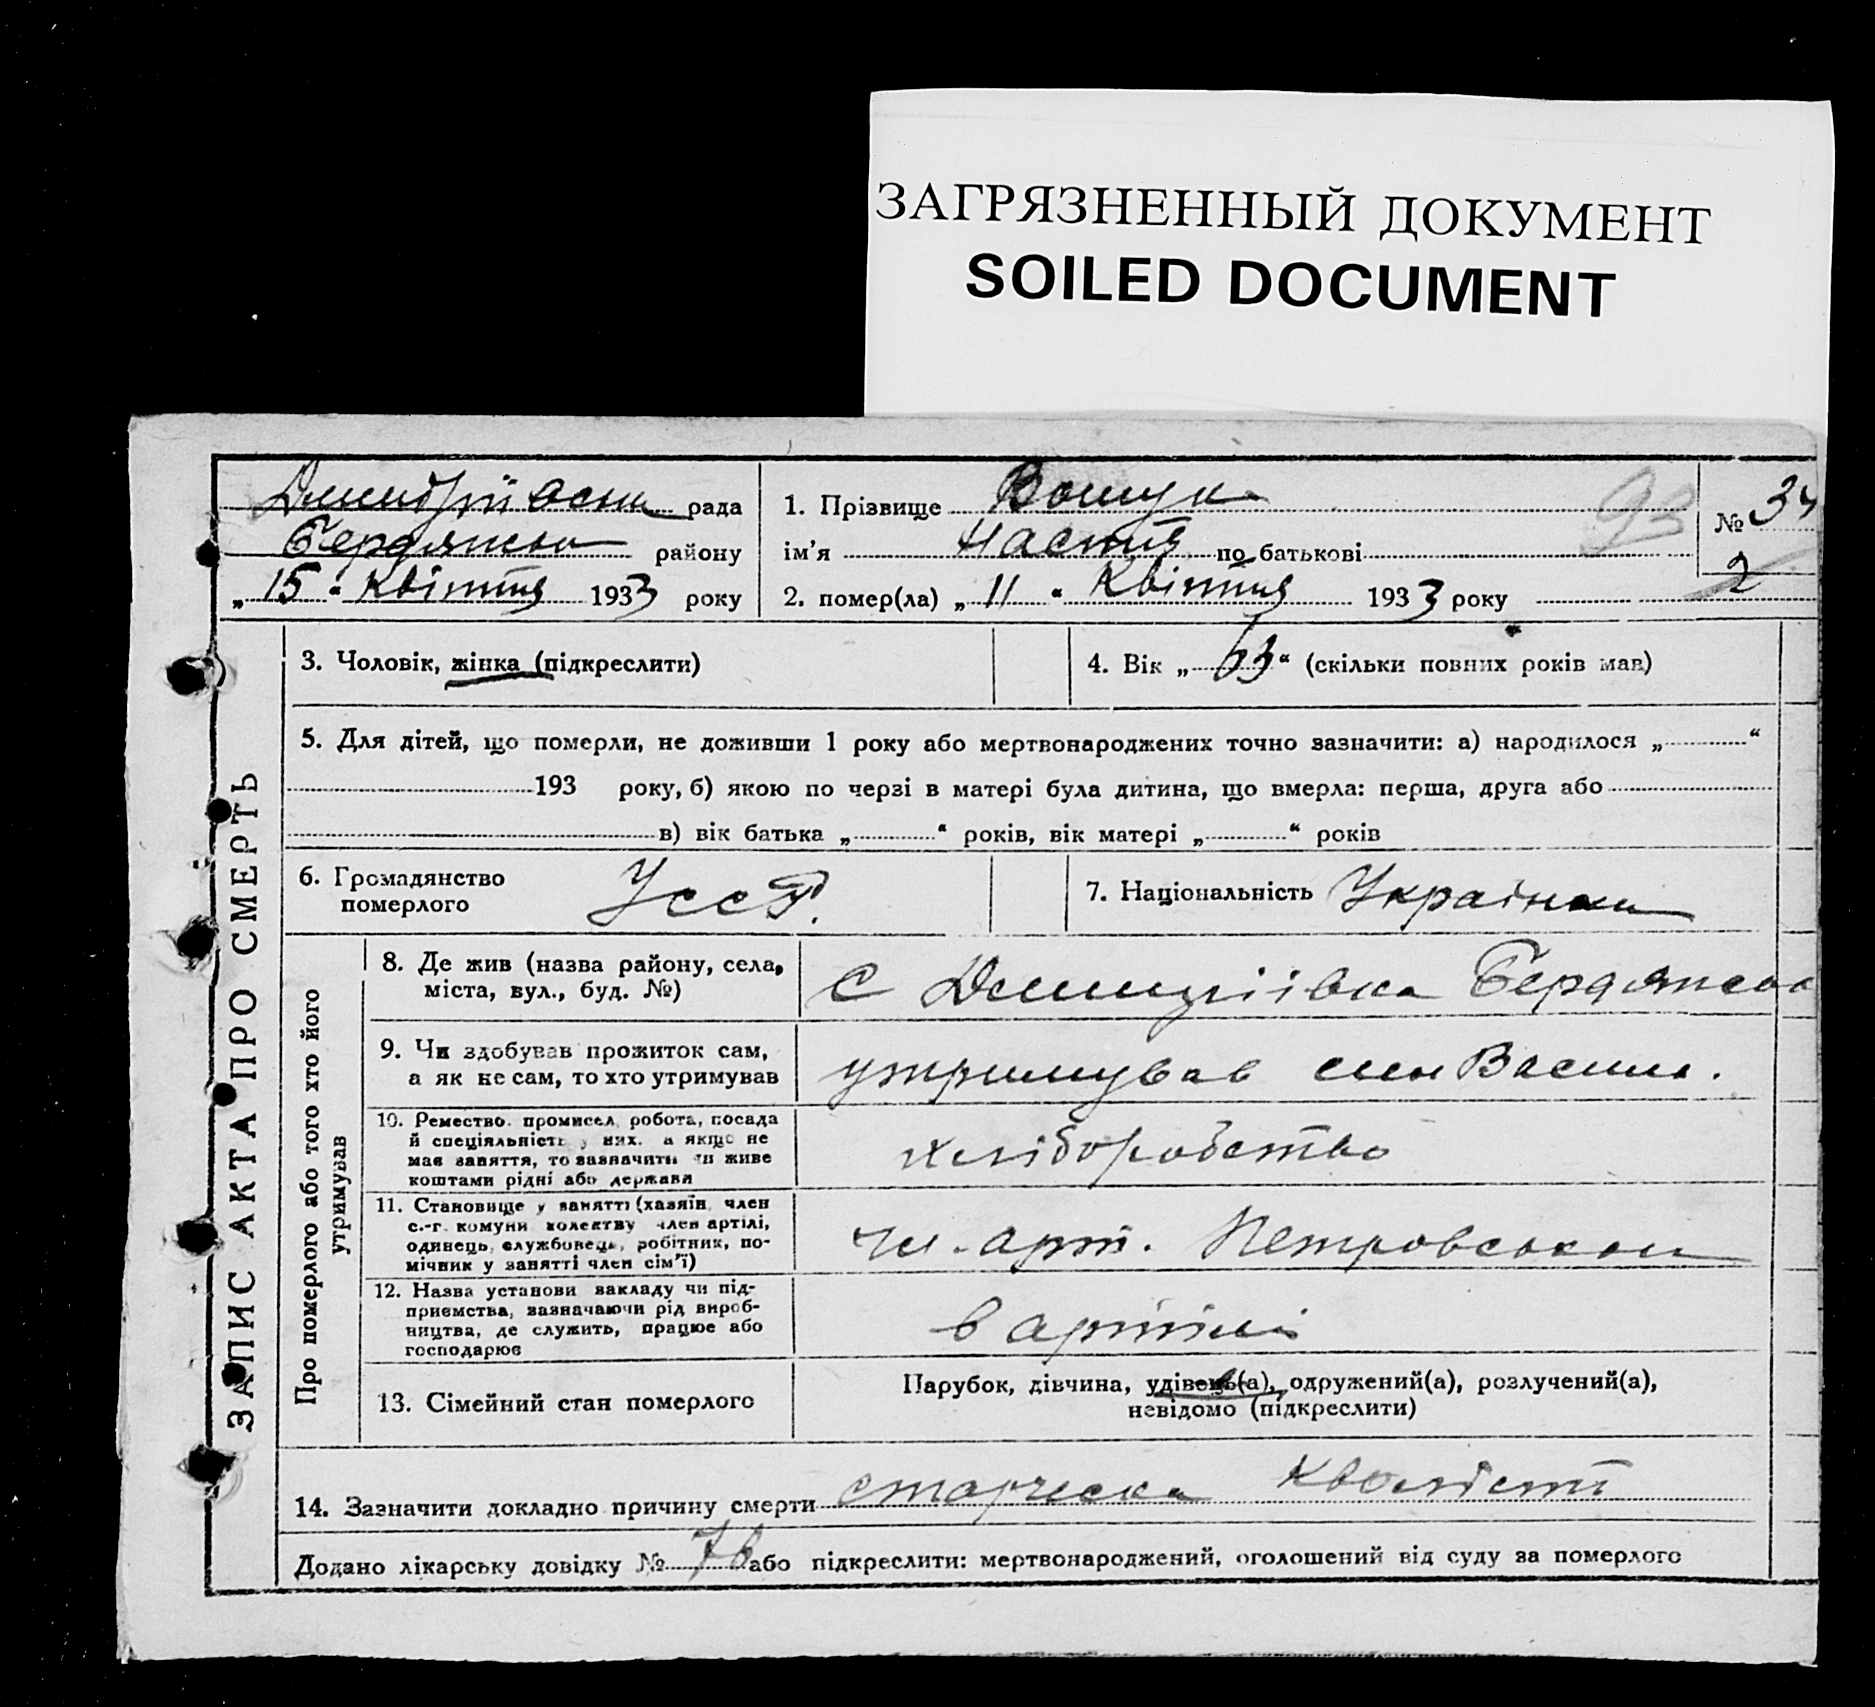 ЗАГРЯЗНЕННЫЙ ДОКУМЕНТ
SOILED DOCUMENT
рада
1. Прізвище Вошук
93
№ 34
Бердянськ району
ім'я Настя по батькові
2
„15“ Квітня 1933 року
2. помер(ла) „11“ Квітня 1933 року
ЗАПИС АКТА ПРО СМЕРТЬ
3. Чоловік, жінка (підкреслити)
4. Вік „63“ (скільки повних років мав)
5. Для дітей, що померли, не доживши 1 року або мертвонароджених точно зазначити: а) народилося „ “
193 року, б) якою по черзі в матері була дитина, що вмерла: перша, друга або
в) вік батька „ “ років, вік матері „ “ років
6. Громадянство померлого УССР.
7. Національність Українка
Про померлого або того хто його утримував
8. Де жив (назва району, села,
міста, вул., буд. №)
с Дмитріівка Бердянськ
9. Чи здобував прожиток сам,
а як не сам, то хто утримував
утримував син Василь.
10. Ремество, промисел, робота, посада
й спеціяльність у них, а якщо не
має заняття, то зазначити чи живе
коштами рідні або держави
хліборобство
11. Становище у занятті (хазяїн, член
с.-г. комуни, колективу, член артілі,
одинець, службовець, робітник, по-
мічник у занятті член сім'ї)
чл. арт. Петровського
12. Назва установи закладу чи під-
приємства, зазначаючи рід вироб-
ництва, де служить, працює або
господарює
в артілі
13. Сімейний стан померлого
Парубок, дівчина, удівець(а), одружений(а), розлучений(а),
невідомо (підкреслити)
14. Зазначити докладно причину смерти старческа кволість
Додано лікарську довідку № 76 або підкреслити: мертвонароджений, оголошений від суду за померлого